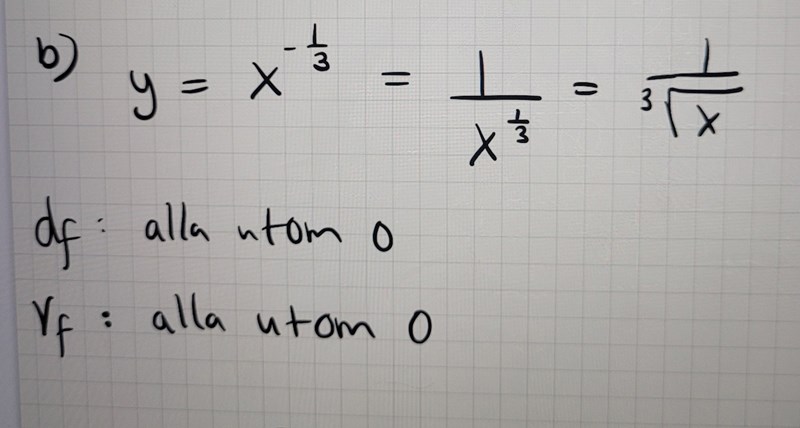 b) y = x^{-\frac{1}{3}} = \frac{1}{x^{\frac{1}{3}}} = \frac{1}{\sqrt[3]{x}}
df: alla utom 0
Vf: alla utom 0